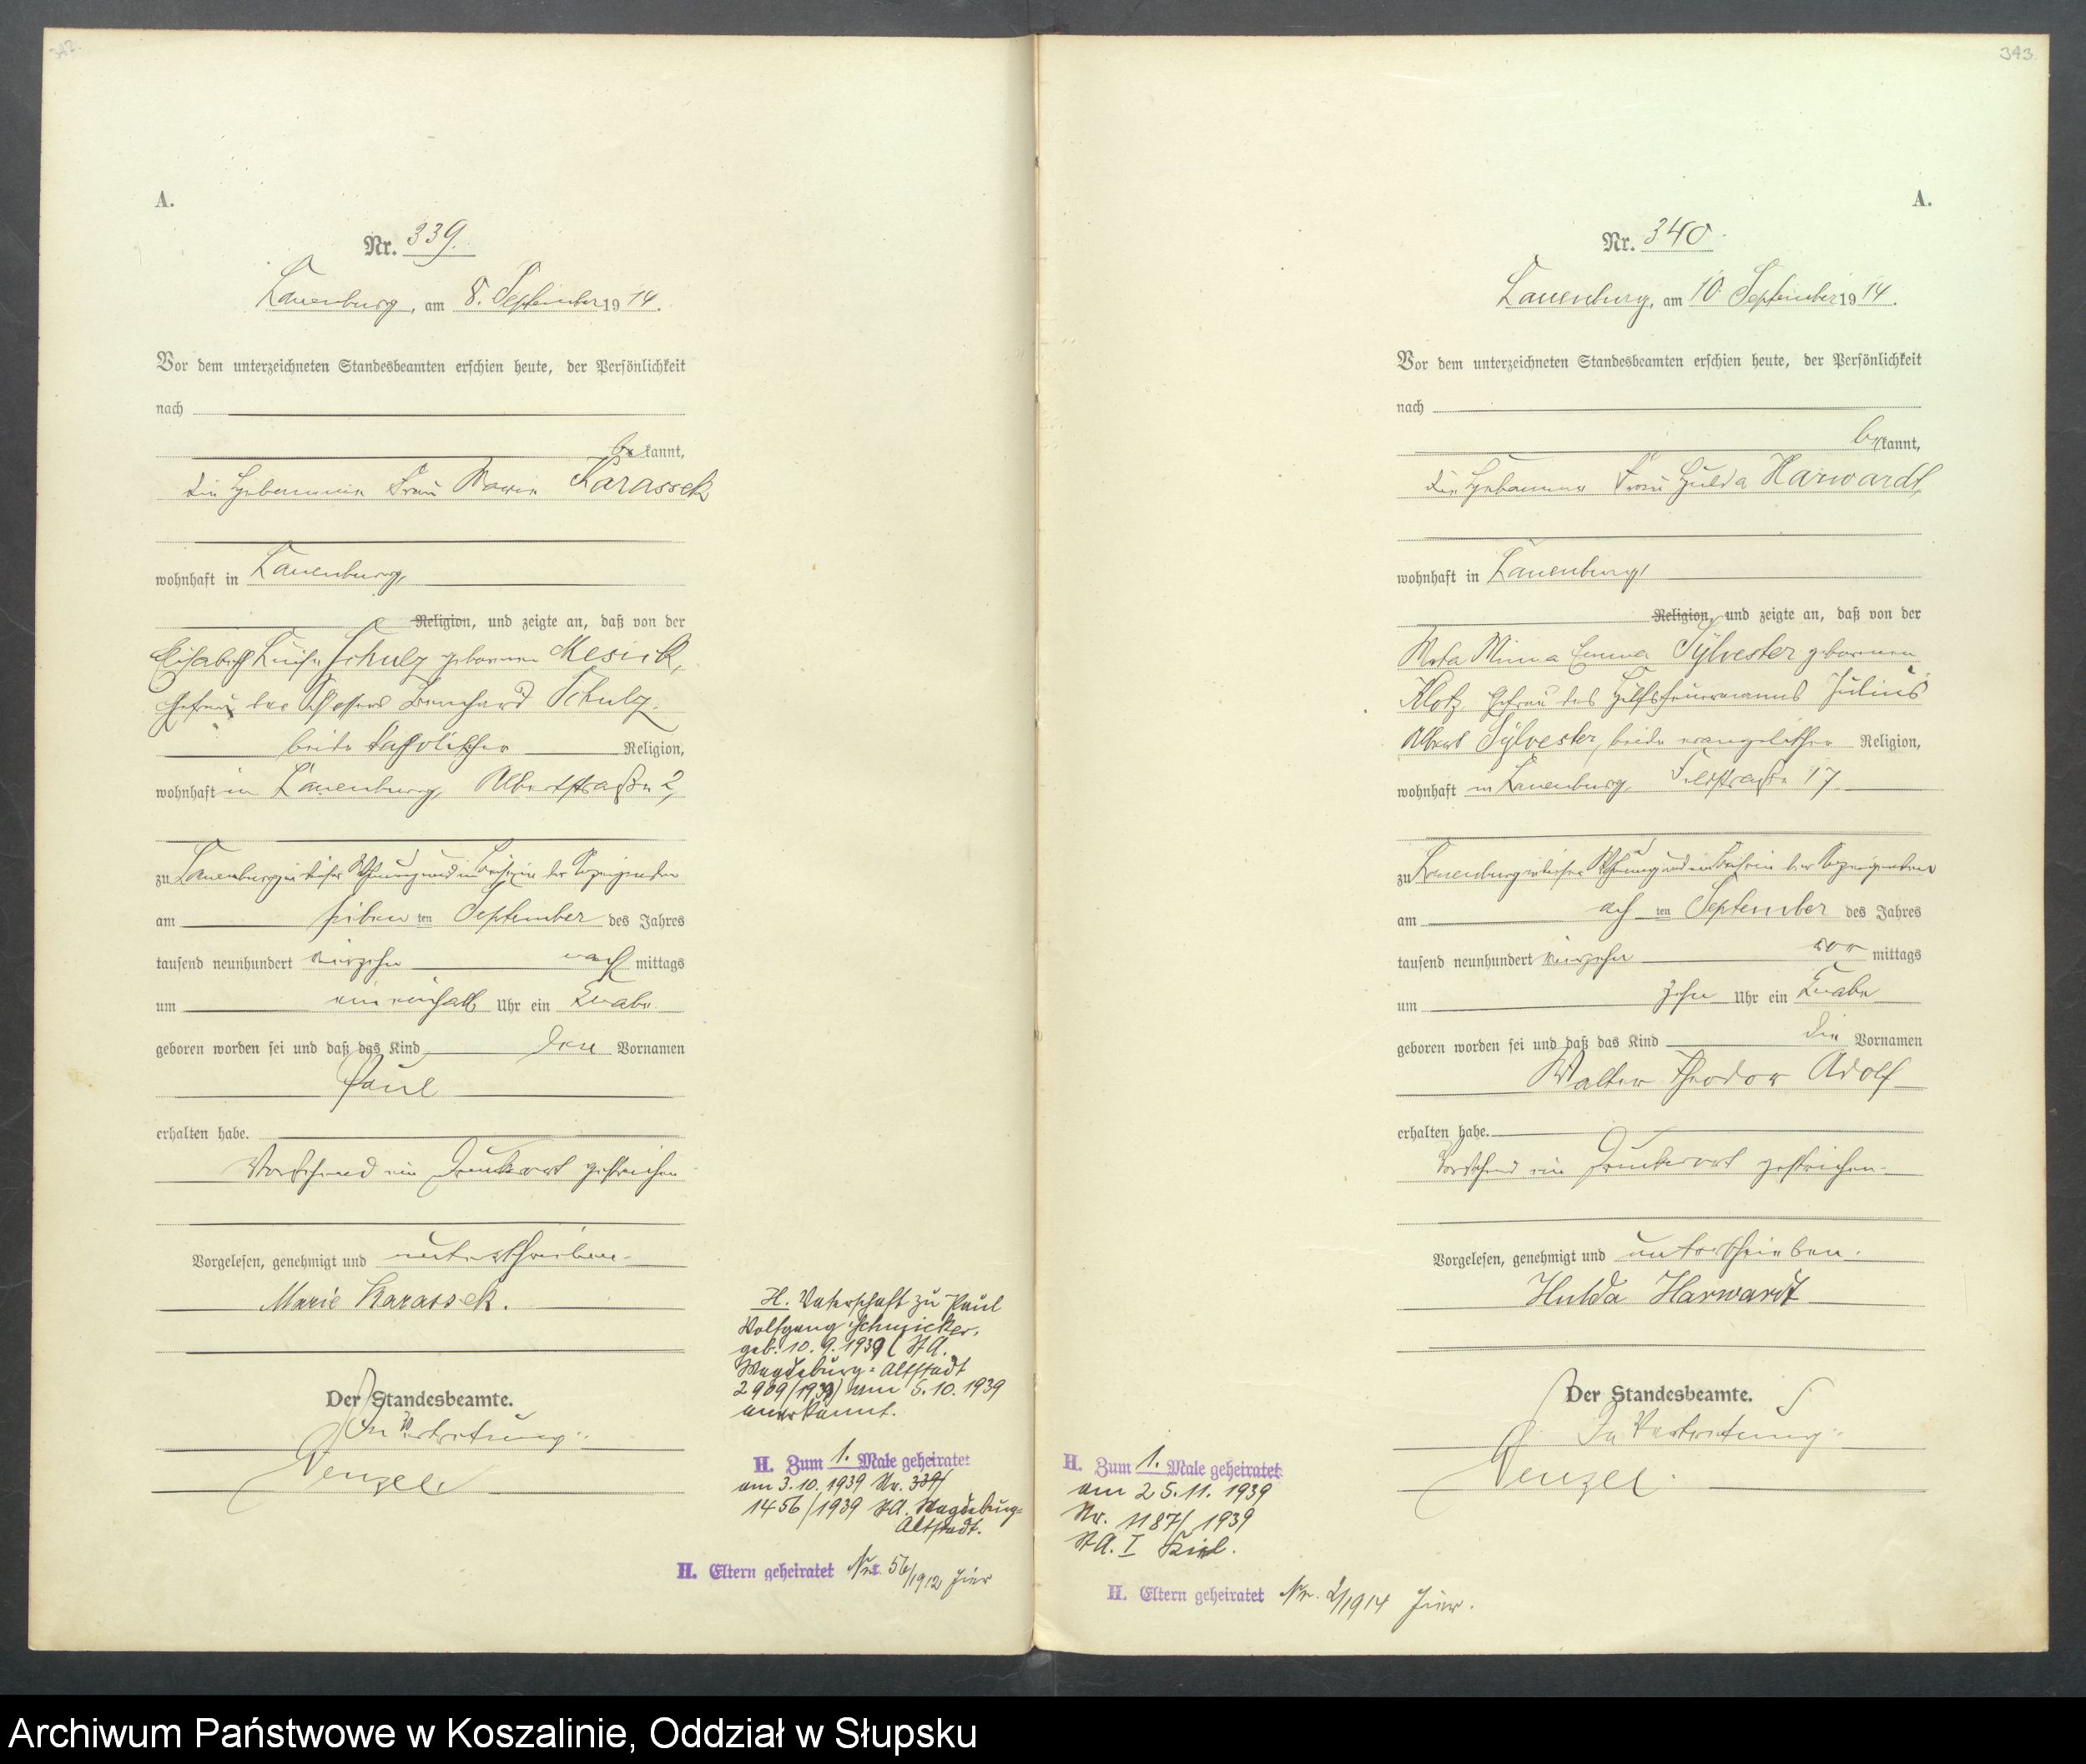 342.
A.
Nr. 339.
Lauenburg, am 8. September 1914.
Vor dem unterzeichneten Standesbeamten erschien heute, der Persönlichkeit
nach
be kannt,
die Hebamme Frau Marie Karassek
wohnhaft in Lauenburg,
Religion, und zeigte an, daß von der
Elisabeth Luise Schulz geborenen Mesick,
Ehefrau des Schlossers Bernhard Schulz,
beide katholischer Religion,
wohnhaft in Lauenburg, Albertstraße 2,
zu Lauenburg in dieser Wohnung und in Beisein der Anzeigenden
am sieben ten September des Jahres
tausend neunhundert vierzehn nach mittags
um ein einhalb Uhr ein Knabe
geboren worden sei und daß das Kind den Vornamen
Paul
erhalten habe.
Vorstehend ein Druckwort gestrichen
Vorgelesen, genehmigt und unterschrieben.
Marie Karassek.
Der Standesbeamte.
In Vertretung.
Wenzel
H. Vaterschaft zu Paul
Wolfgang Schmicker,
geb. 10. 9. 1939 (St A.
Magdeburg-Altstadt
2909/1939) am 5.10.1939
anerkannt.
H. Zum 1. Male geheiratet
am 3.10.1939 Nr. 339/
1456/1939 StA. Magdeburg-
Altstadt.
H. Eltern geheiratet Nr. 56/1912 hier
343.
A.
Nr. 340.
Lauenburg, am 10 September 1914.
Vor dem unterzeichneten Standesbeamten erschien heute, der Persönlichkeit
nach
be kannt,
die Hebamme Frau Hulda Harwardt,
wohnhaft in Lauenburg,
Religion, und zeigte an, daß von der
Meta Minna Emma Sylvester geborenen
Klotz, Ehefrau des Hilfsfeuermanns Julius
Albert Sylvester, beide evangelischer Religion,
wohnhaft in Lauenburg, Feldstraße 17
zu Lauenburg in dieser Wohnung und in Beisein der Anzeigenden
am ach ten September des Jahres
tausend neunhundert vierzehn vor mittags
um zehn Uhr ein Knabe
geboren worden sei und daß das Kind die Vornamen
Walter Theodor Adolf
erhalten habe.
Vorstehend ein Druckwort gestrichen.
Vorgelesen, genehmigt und unterschrieben.
Hulda Harwardt
Der Standesbeamte.
In Vertretung.
Wenzel.
H. Zum 1. Male geheiratet
am 25.11. 1939
Nr. 1187/1939
StA. I Kiel.
H. Eltern geheiratet Nr. 2/1914 hier.
Archiwum Państwowe w Koszalinie, Oddział w Słupsku